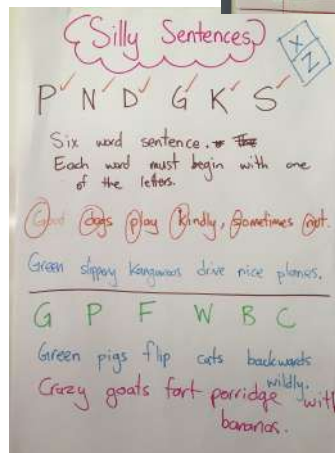 Silly Sentences
X
Z
P N D G K S
Six word sentence.
Each word must begin with one
of the letters.
Good dogs play kindly, sometimes not.
Green slippery Kangaroos drive nice planes.
G P F W B C
Green pigs flip cats backwards
wildly.
Crazy goats fart porridge with
bananas.